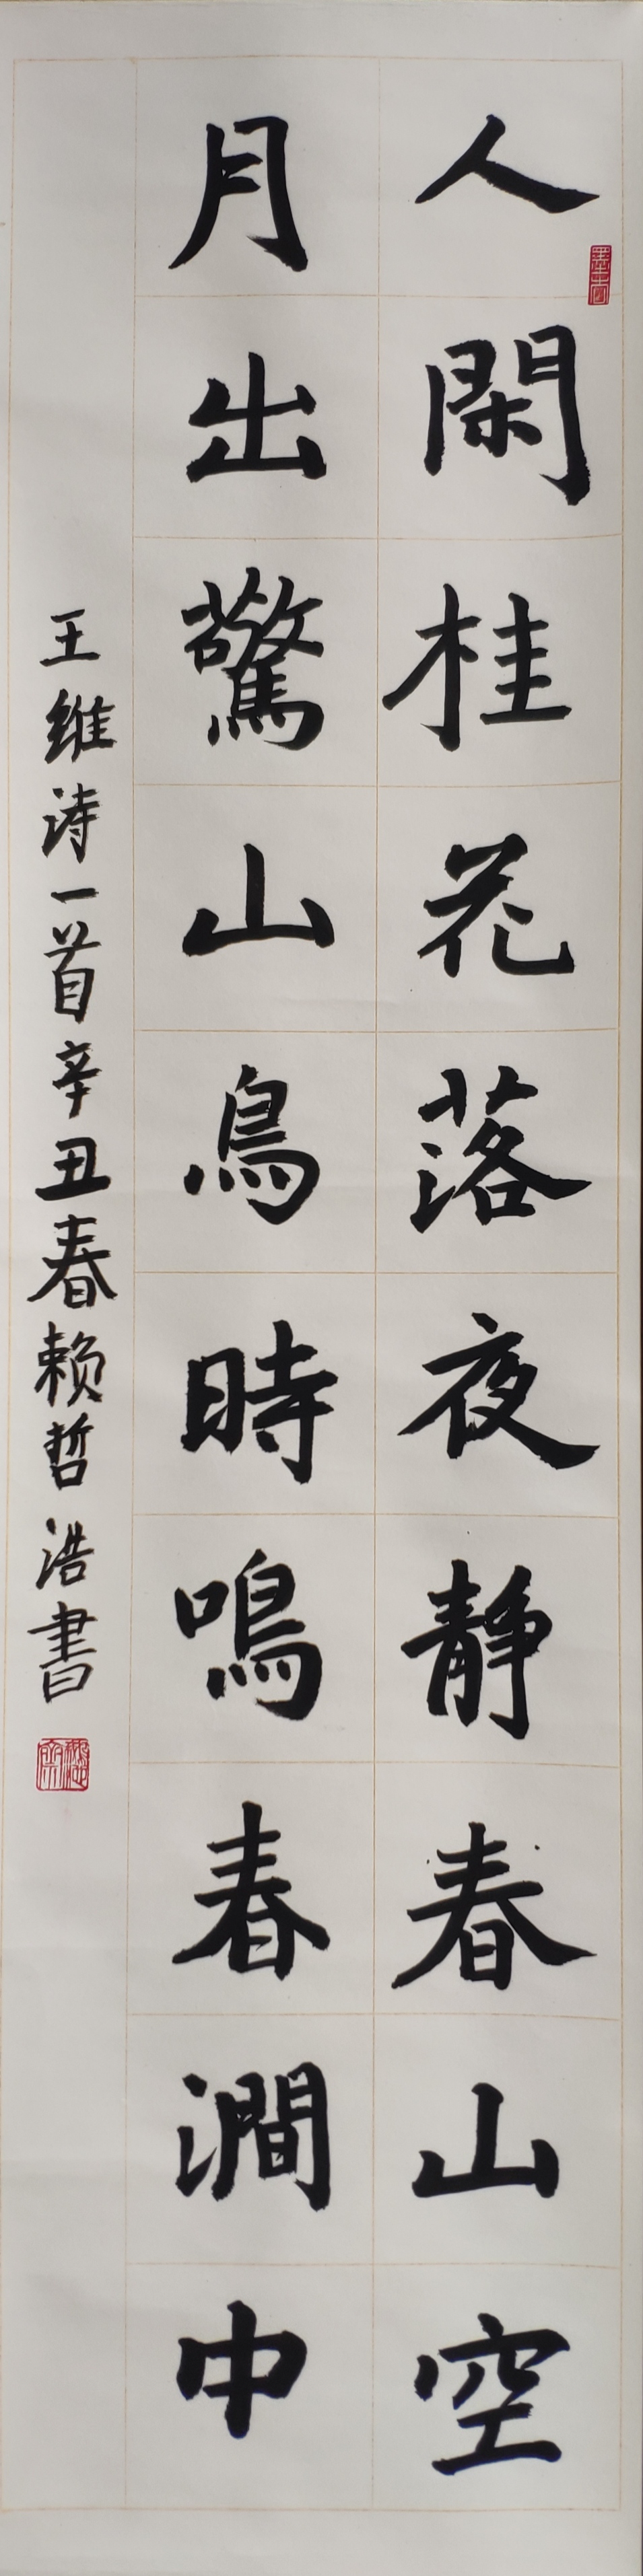 人閑桂花落夜靜春山空
月出驚山鳥時鳴春澗中
王维诗一首辛丑春赖哲浩書